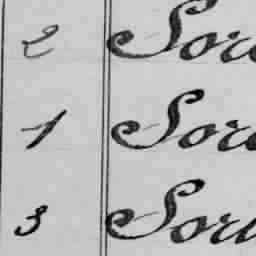 2 Sor
1 Sor
3 Sor